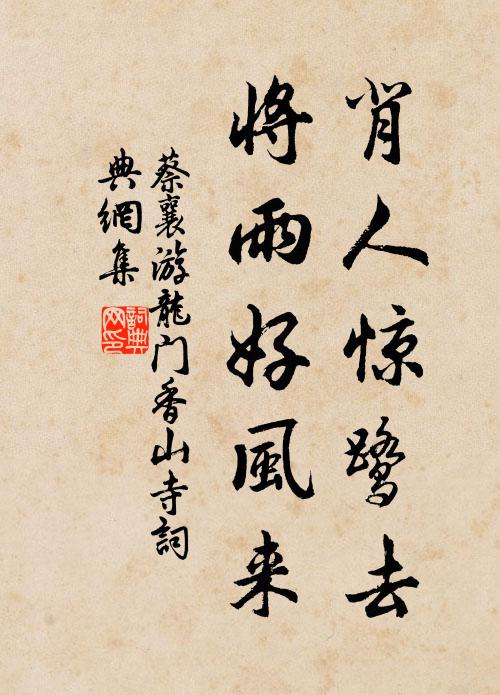 背人惊鹭去
将雨好風来
蔡襄游龍门香山寺詞
典網集
詞典网印